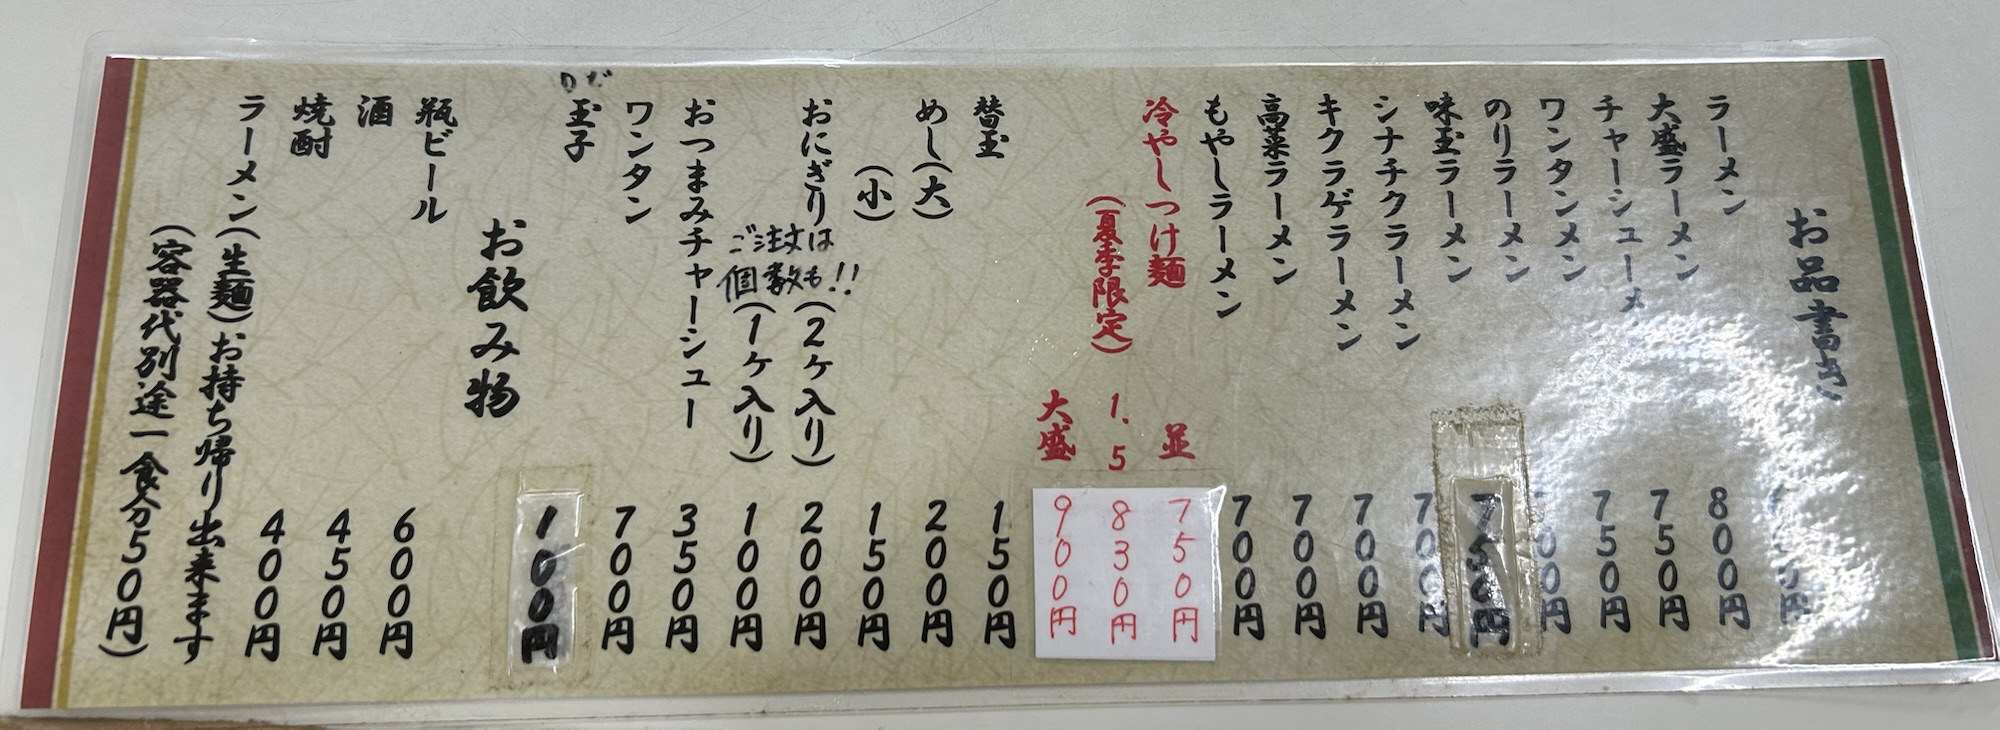 お品書き
ラーメン 50円
大盛ラーメン 800円
チャーシューメン 750円
ワンタンメン 750円
のりラーメン 00円
味玉ラーメン 750円
シナチクラーメン 700円
キクラゲラーメン 700円
高菜ラーメン 700円
もやしラーメン 700円
冷やしつけ麺 並 750円
(夏季限定) 1.5 830円
大盛 900円
替玉 150円
めし(大) 200円
(小) 150円
おにぎり(2ヶ入り) 200円
(1ヶ入り) 100円
ご注文は
個数も!!
おつまみチャーシュー 350円
ワンタン 700円
玉子 100円
お飲み物
瓶ビール 600円
酒 450円
焼酎 400円
ラーメン(生麺)お持ち帰り出来ます
(容器代別途一食分50円)